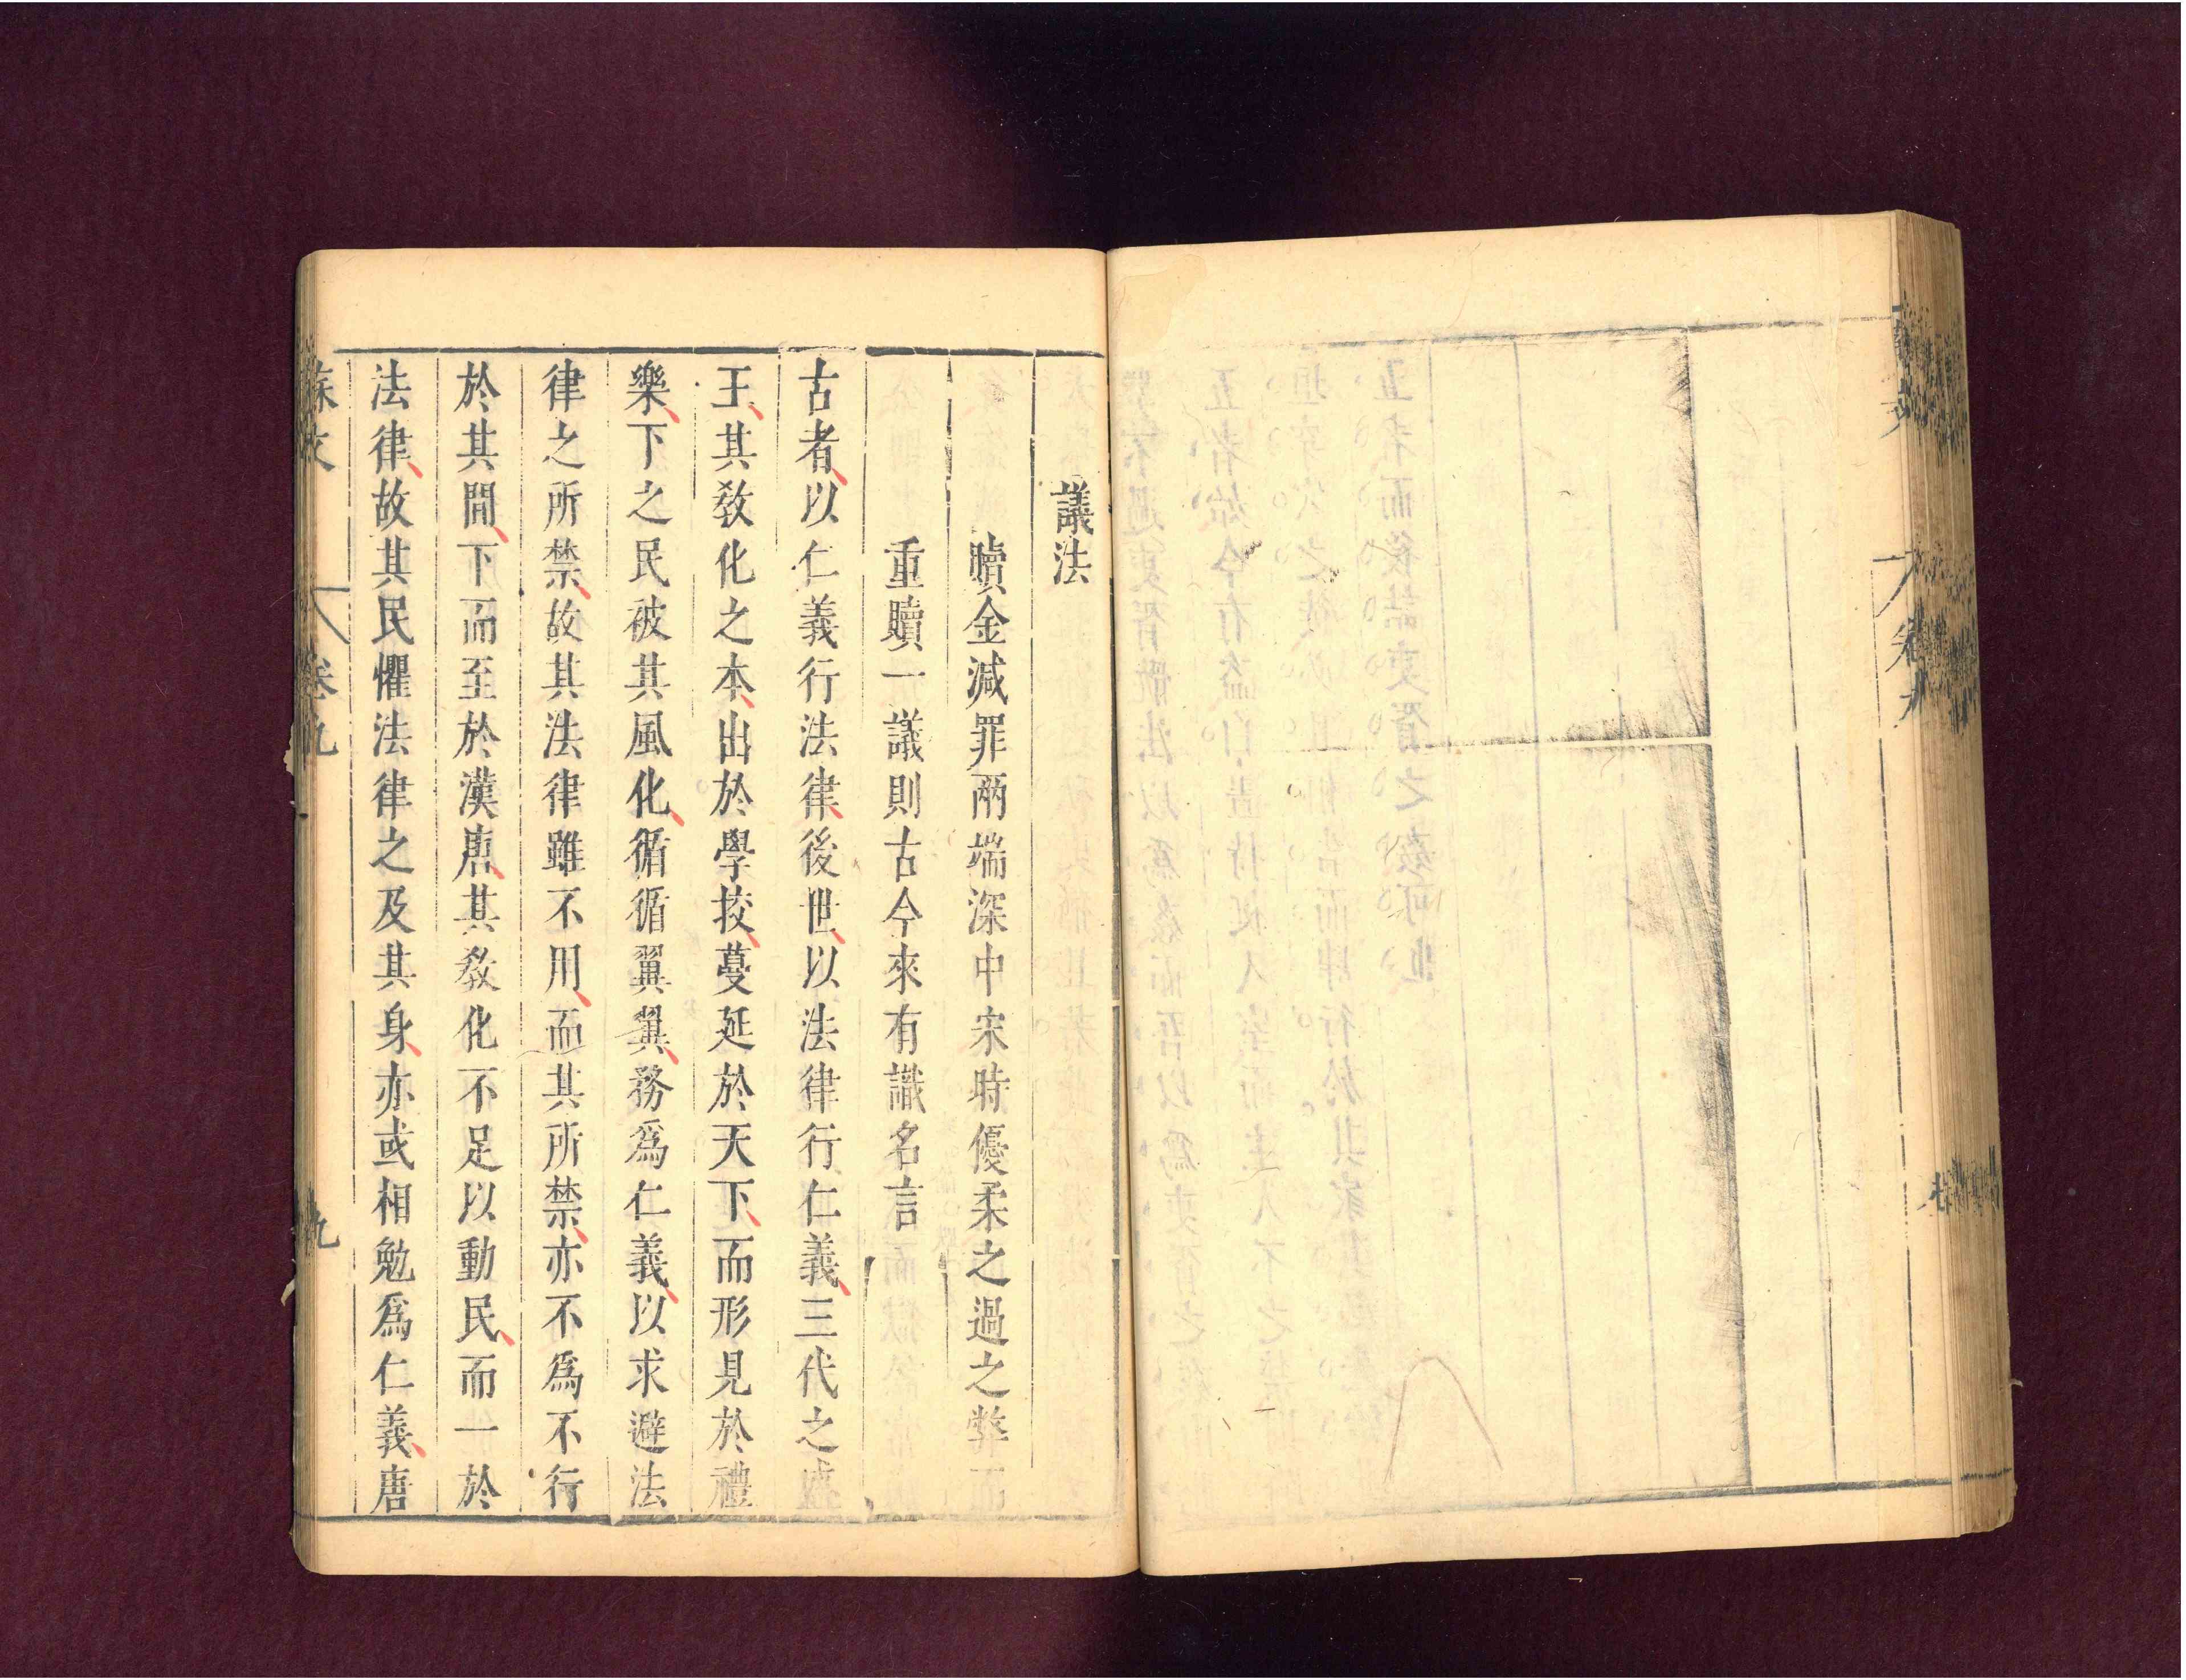 議法
贖金減罪兩端深中宋時優柔之過之弊而
重贖一議則古今來有識名言
古者以仁義行法律後世以法律行仁義三代之盛
王其敎化之本出於學挍蔓延於天下而形見於禮
樂下之民被其風化循循翼翼務爲仁義以求避法
律之所禁故其法律雖不用而其所禁亦不爲不行
於其閒下而至於漢唐其敎化不足以動民而一於
法律故其民懼法律之及其身亦或相勉爲仁義唐
蘇文 卷九 九